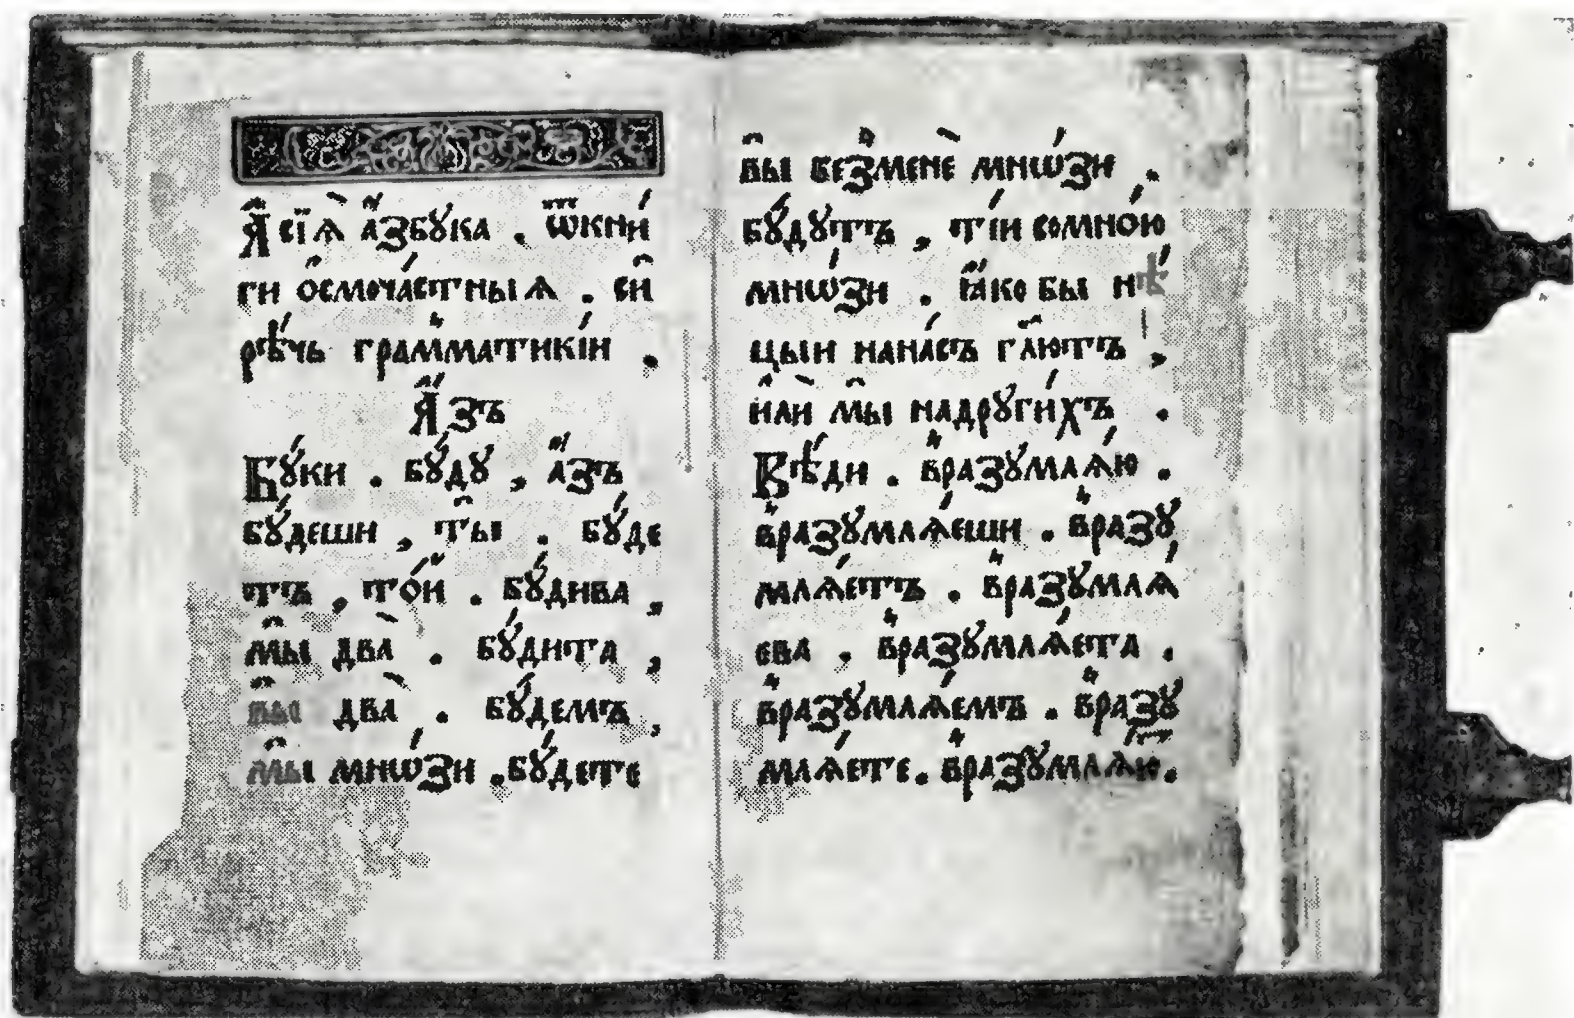 А҆ сїѧ̀ а҆́збꙋка . ѿкни́
ги ѻ҆смоча́стныѧ . си̑
рѣ́чь грам̾матикі́и .
А҆́зъ
Бꙋ́ки . бꙋ́дꙋ , а҆́зъ
бꙋ́деши , ты̑ . бꙋ́де
тъ , то́й . бꙋ́дива ,
мы̑ два̀ . бꙋ́дита ,
вы̑ два̀ . бꙋ́демъ ,
мы̑ мнѡ́зи . бꙋ́дете
вы̑ без̾менѐ мнѡ́зи .
бꙋ́дꙋтъ , ті́и сомно́ю
мнѡ́зи . ꙗ҆́ко бы нѣ́
цыи нана́съ гл҃ютъ ,
и҆лѝ мы̑ надрꙋги́хъ .
Вѣ́ди . в̾разꙋмлѧ́ю .
в̾разꙋмлѧ́еши . в̾разꙋ
млѧ́етъ . в̾разꙋмлѧ́
ева . в̾разꙋмлѧ́ета .
в̾разꙋмлѧ́емъ . в̾разꙋ
млѧ́ете . в̾разꙋмлѧ́ютⷮ .